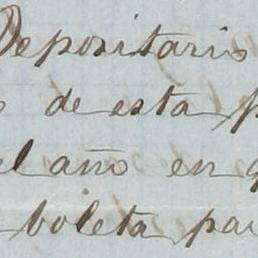 Depositario
de esta
el año en
boleta